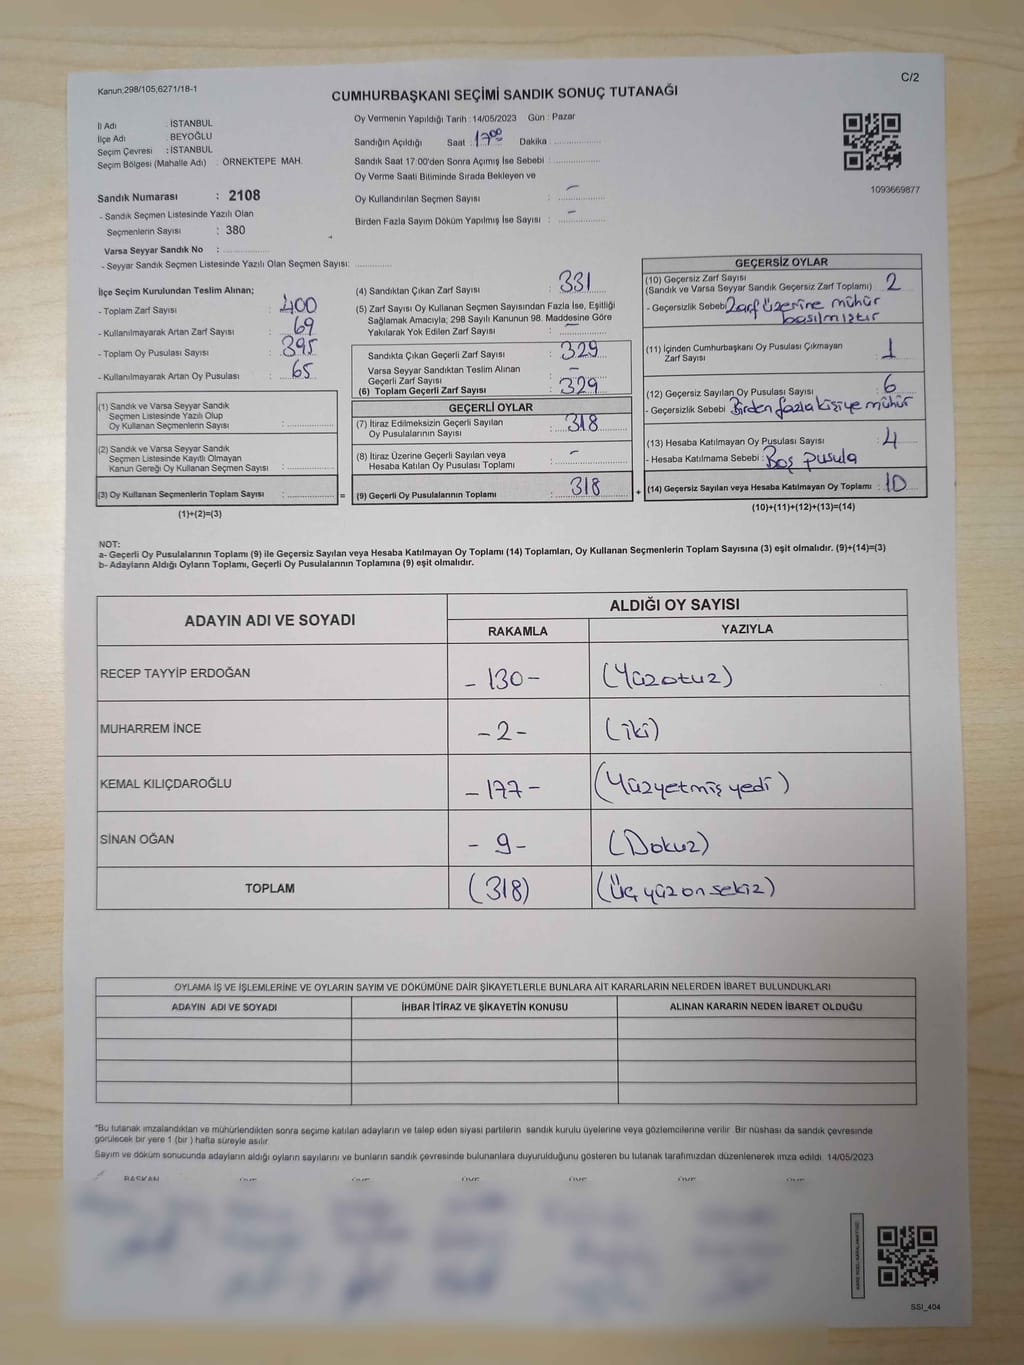 Kanun;298/105,6271/18-1
C/2
CUMHURBAŞKANI SEÇİMİ SANDIK SONUÇ TUTANAĞI
İl Adı : İSTANBUL
İlçe Adı : BEYOĞLU
Seçim Çevresi : İSTANBUL
Seçim Bölgesi (Mahalle Adı) : ÖRNEKTEPE MAH.
Sandık Numarası : 2108
- Sandık Seçmen Listesinde Yazılı Olan
Seçmenlerin Sayısı : 380
Varsa Seyyar Sandık No : ..............
- Seyyar Sandık Seçmen Listesinde Yazılı Olan Seçmen Sayısı: ............
Oy Vermenin Yapıldığı Tarih : 14/05/2023 Gün : Pazar
Sandığın Açıldığı Saat : 17 00 Dakika : ..............
Sandık Saat 17:00'den Sonra Açımış İse Sebebi : ..............
Oy Verme Saati Bitiminde Sırada Bekleyen ve
Oy Kullandırılan Seçmen Sayısı : —
Birden Fazla Sayım Döküm Yapılmış İse Sayısı : —
1093669877
İlçe Seçim Kurulundan Teslim Alınan;
- Toplam Zarf Sayısı : 400
- Kullanılmayarak Artan Zarf Sayısı : 69
- Toplam Oy Pusulası Sayısı : 395
- Kullanılmayarak Artan Oy Pusulası : 65
(1) Sandık ve Varsa Seyyar Sandık
Seçmen Listesinde Yazılı Olup
Oy Kullanan Seçmenlerin Sayısı : ..............
(2) Sandık ve Varsa Seyyar Sandık
Seçmen Listesinde Kayıtlı Olmayan
Kanun Gereği Oy Kullanan Seçmen Sayısı : ..............
(3) Oy Kullanan Seçmenlerin Toplam Sayısı : .............. =
(1)+(2)=(3)
(4) Sandıktan Çıkan Zarf Sayısı : 331
(5) Zarf Sayısı Oy Kullanan Seçmen Sayısından Fazla İse, Eşitliği
Sağlamak Amacıyla; 298 Sayılı Kanunun 98. Maddesine Göre
Yakılarak Yok Edilen Zarf Sayısı : —
Sandıkta Çıkan Geçerli Zarf Sayısı : 329
Varsa Seyyar Sandıktan Teslim Alınan
Geçerli Zarf Sayısı : —
(6) Toplam Geçerli Zarf Sayısı : 329
GEÇERLİ OYLAR
(7) İtiraz Edilmeksizin Geçerli Sayılan
Oy Pusulalarının Sayısı : 318
(8) İtiraz Üzerine Geçerli Sayılan veya
Hesaba Katılan Oy Pusulası Toplamı : -
(9) Geçerli Oy Pusulalarının Toplamı : 318 +
GEÇERSİZ OYLAR
(10) Geçersiz Zarf Sayısı : 2
(Sandık ve Varsa Seyyar Sandık Geçersiz Zarf Toplamı)
- Geçersizlik Sebebi : Zarf üzerine mühür
basılmıştır
(11) İçinden Cumhurbaşkanı Oy Pusulası Çıkmayan
Zarf Sayısı : 1
(12) Geçersiz Sayılan Oy Pusulası Sayısı : 6
- Geçersizlik Sebebi Birden fazla kişiye mühür
(13) Hesaba Katılmayan Oy Pusulası Sayısı : 4
- Hesaba Katılmama Sebebi : Boş pusula
(14) Geçersiz Sayılan veya Hesaba Katılmayan Oy Toplamı : 10
(10)+(11)+(12)+(13)=(14)
NOT:
a- Geçerli Oy Pusulalarının Toplamı (9) ile Geçersiz Sayılan veya Hesaba Katılmayan Oy Toplamı (14) Toplamları, Oy Kullanan Seçmenlerin Toplam Sayısına (3) eşit olmalıdır. (9)+(14)=(3)
b- Adayların Aldığı Oyların Toplamı, Geçerli Oy Pusulalarının Toplamına (9) eşit olmalıdır.
ADAYIN ADI VE SOYADI ALDIĞI OY SAYISI
RAKAMLA YAZIYLA
RECEP TAYYİP ERDOĞAN - 130 - (Yüzotuz)
MUHARREM İNCE - 2 - (iki)
KEMAL KILIÇDAROĞLU - 177 - (Yüzyetmiş yedi)
SİNAN OĞAN - 9 - (Dokuz)
TOPLAM (318) (Üç yüz on sekiz)
OYLAMA İŞ VE İŞLEMLERİNE VE OYLARIN SAYIM VE DÖKÜMÜNE DAİR ŞİKAYETLERLE BUNLARA AİT KARARLARIN NELERDEN İBARET BULUNDUKLARI
ADAYIN ADI VE SOYADI İHBAR İTİRAZ VE ŞİKAYETİN KONUSU ALINAN KARARIN NEDEN İBARET OLDUĞU
*Bu tutanak imzalandıktan ve mühürlendikten sonra seçime katılan adayların ve talep eden siyasi partilerin sandık kurulu üyelerine veya gözlemcilerine verilir Bir nüshası da sandık çevresinde
görülecek bir yere 1 (bir ) hafta süreyle asılır.
Sayım ve döküm sonucunda adayların aldığı oyların sayılarını ve bunların sandık çevresinde bulunanlara duyurulduğunu gösteren bu tutanak tarafımızdan düzenlenerek imza edildi. 14/05/2023
BAŞKAN ÜYE ÜYE ÜYE ÜYE ÜYE ÜYE
SSI_404